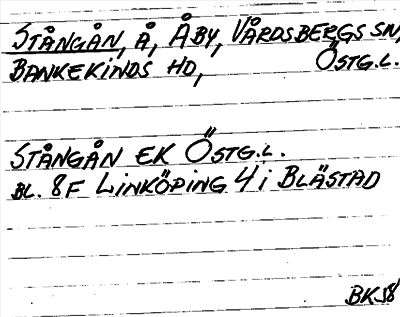 STÅNGÅN, Å, ÅBY, VÅRDSBERGS SN,
BANKEKINDS HD, ÖSTG.L.
STÅNGÅN EK ÖSTG.L.
BL. 8F LINKÖPING 4 i BLÄSTAD
BK58